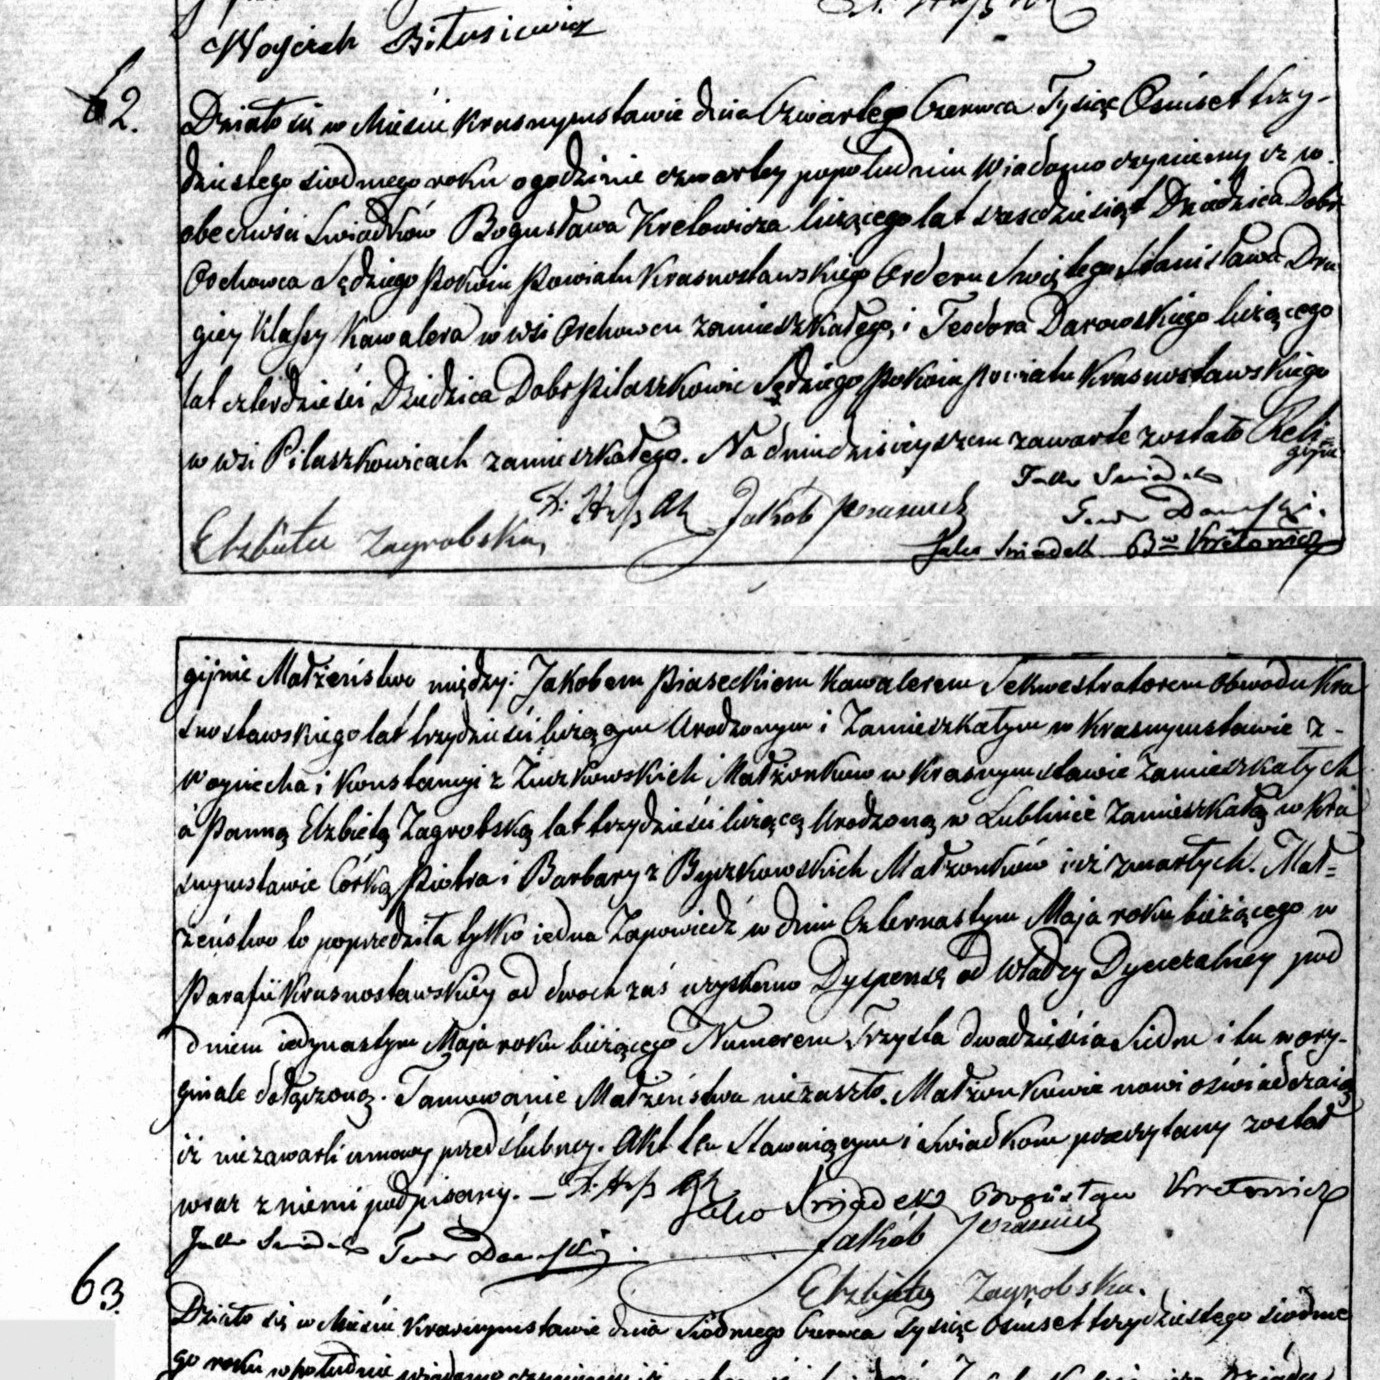 Woyciech Bitusiewicz
62.
Działo się w Mieście Krasnymstawie dnia Czwartego Czerwca Tysiąc Ośmset trzy-
dziestego siodmego roku o godzinie czwartey popołudniu Wiadomo czyniemy iż w o-
obecności Swiadków Bogusława Kretowicza liczącego lat szescdziesiąt Dziedzica Dobr
Orchowca Sędziego Pokoiu Powiatu Krasnostawskiego Orderu Swiętego Stanisława Dru
giey Klassy Kawalera w wsi Orchowcu zamieszkałego, i Teodora Darowskiego liczącego
lat czterdzieści Dziedzica Dobr Pilaszkowic Sędziego Pokoiu Powiatu Krasnostawskiego
w wsi Pilaszkowicach zamieszkałego. Na dniu dzisieyszem zawarte zostało Reli-
gijne
Jako Swiadek
Elzbieta Zagrobska Jakób
Jako Swiadek B Kretowicz
gijnie Małżeństwo między: Jakobem Piaseckiem Kawalerem Sekwestratorem Obwodu Kra
snostawskiego lat trzydzieści liczącym Urodzonym i Zamieszkałym w Krasnymstawie z-
Woyciecha i Konstancyi z Małżonków w Krasnymstawie Zamieszkałych
a Panną Elzbietą Zagrobską lat trzydzieści liczącą Urodzoną w Lublinie Zamieszkałą w Kra
snymstawie Córką Piotra i Barbary z Byczkowskich Małżonków iuż zmarłych. Mał=
żeństwo to poprzedziła tylko iedna Zapowiedź w dniu Czternastym Maja roku bieżącego w
Parafii Krasnostawskiey od dwoch zaś uzyskano Dyspensę od Władzy Dyecezalney pod
dniem iedynastym Maja roku bieżącego Numerem Trzysta dwadzieścia Siedm i tu w ory-
ginale dołączoną. Tamowanie Małżeństwa niezaszło. Małżonkowie nowi oświadczaią
iż niezawarli umowy przedślubney. Akt ten Stawaiącym i Swiadkom przeczytany został
wraz z niemi podpisany. –
Jako Swiadek Bogusław Kretowicz
Jako Swiadek
Jakób
Elzbieta Zagrobska.
63.
Działo się w Mieście Krasnymstawie dnia Siodmego Czerwca Tysiąc Ośmset trzydziestego siodme
go roku w południe wiadomo czyniemy iż